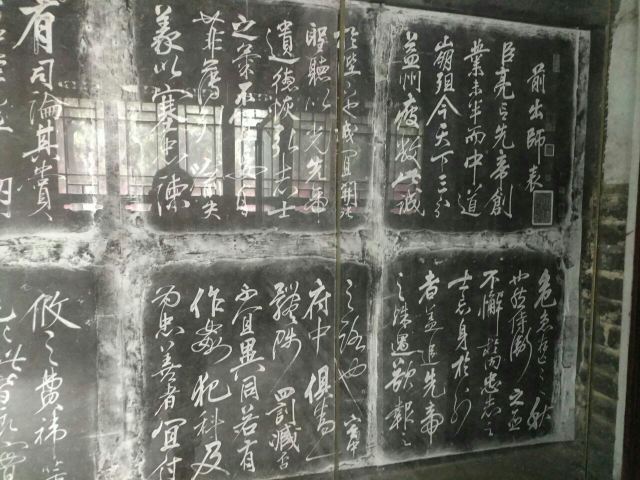 前出師表
臣亮言先帝創
業未半而中道
崩殂今天下三分
益州疲敝此誠
危急存亡之秋
也然侍衛之臣
不懈於內忠志之
士忘身於外
者蓋追先帝
之殊遇欲報之
於陛下也誠宜開張
聖聽以光先帝
遺德恢弘志士
之氣不宜妄自
菲薄引喻失
義以塞忠諫
之路也宮中
府中俱為一
體陟罰臧否
不宜異同若有
作姦犯科及
為忠善者宜付
有司論其賞
攸之費禕董